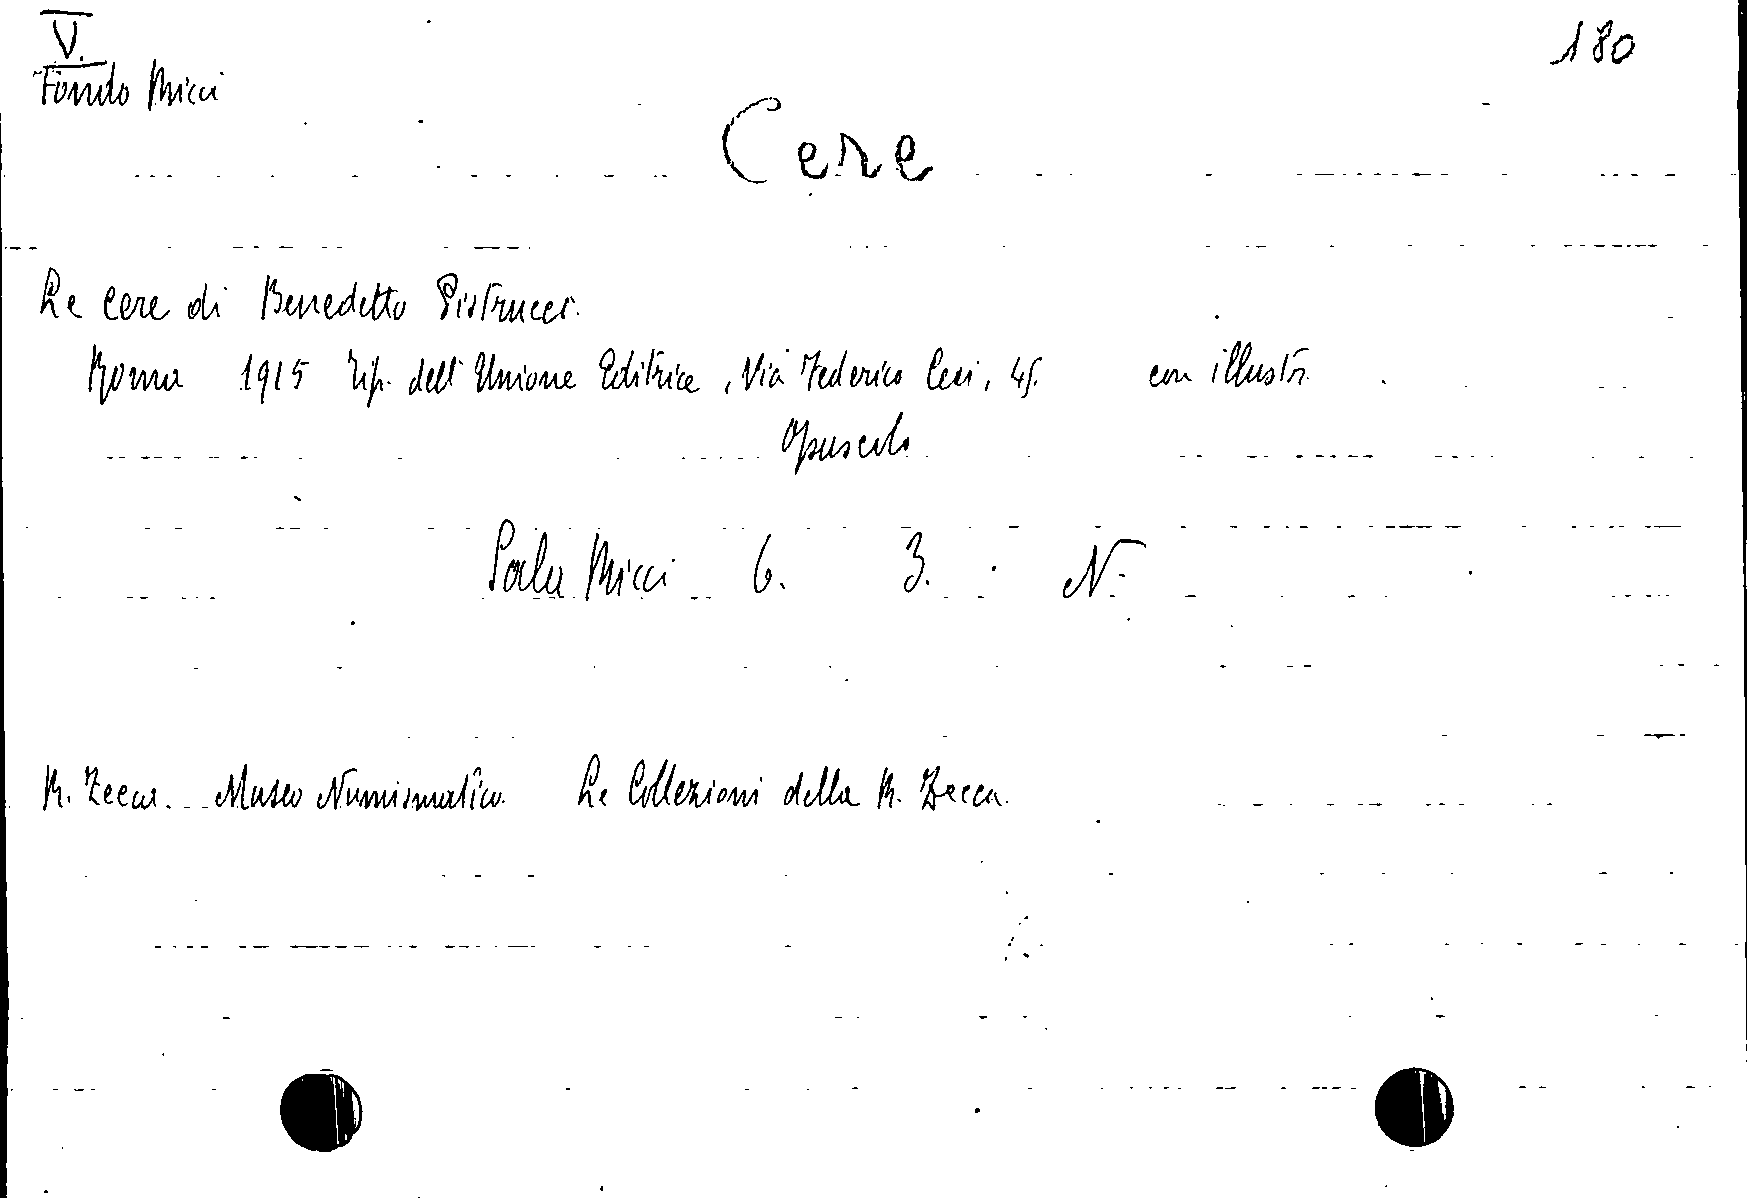 V.
180
Fondo Ricci
Cere
Le cere di Benedetto Pistrucci.
Roma 1915 Tip. dell'Unione Editrice, Via Federico Cesi, 45. con illustr.
Opuscolo
Sala Ricci 6. 3. N.
R. Zecca. Museo Numismatico. Le Collezioni della R. Zecca.